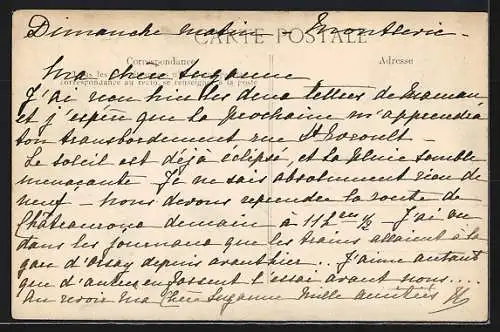 Dimanche matin - Montlevic -
CARTE POSTALE
Correspondance
Adresse
Ma chère Suzanne
correspondance au recto, se renseigner à la poste
J'ai reçu hier les deux lettres de Maman
et j'espère que la prochaine m'apprendra
ton transbordement rue St
Le soleil est déjà éclipsé, et la pluie semble
menaçante - Je ne sais absolument rien de
neuf - Nous devons reprendre la route de
Châteauroux demain à 11 heures 1/2 - J'ai vu
dans les journaux que les trains allaient à la
gare d'Orsay depuis avant hier .. J'aime autant
que d'autres en fassent l'essai avant nous ....
Au revoir ma chère Suzanne mille amitiés